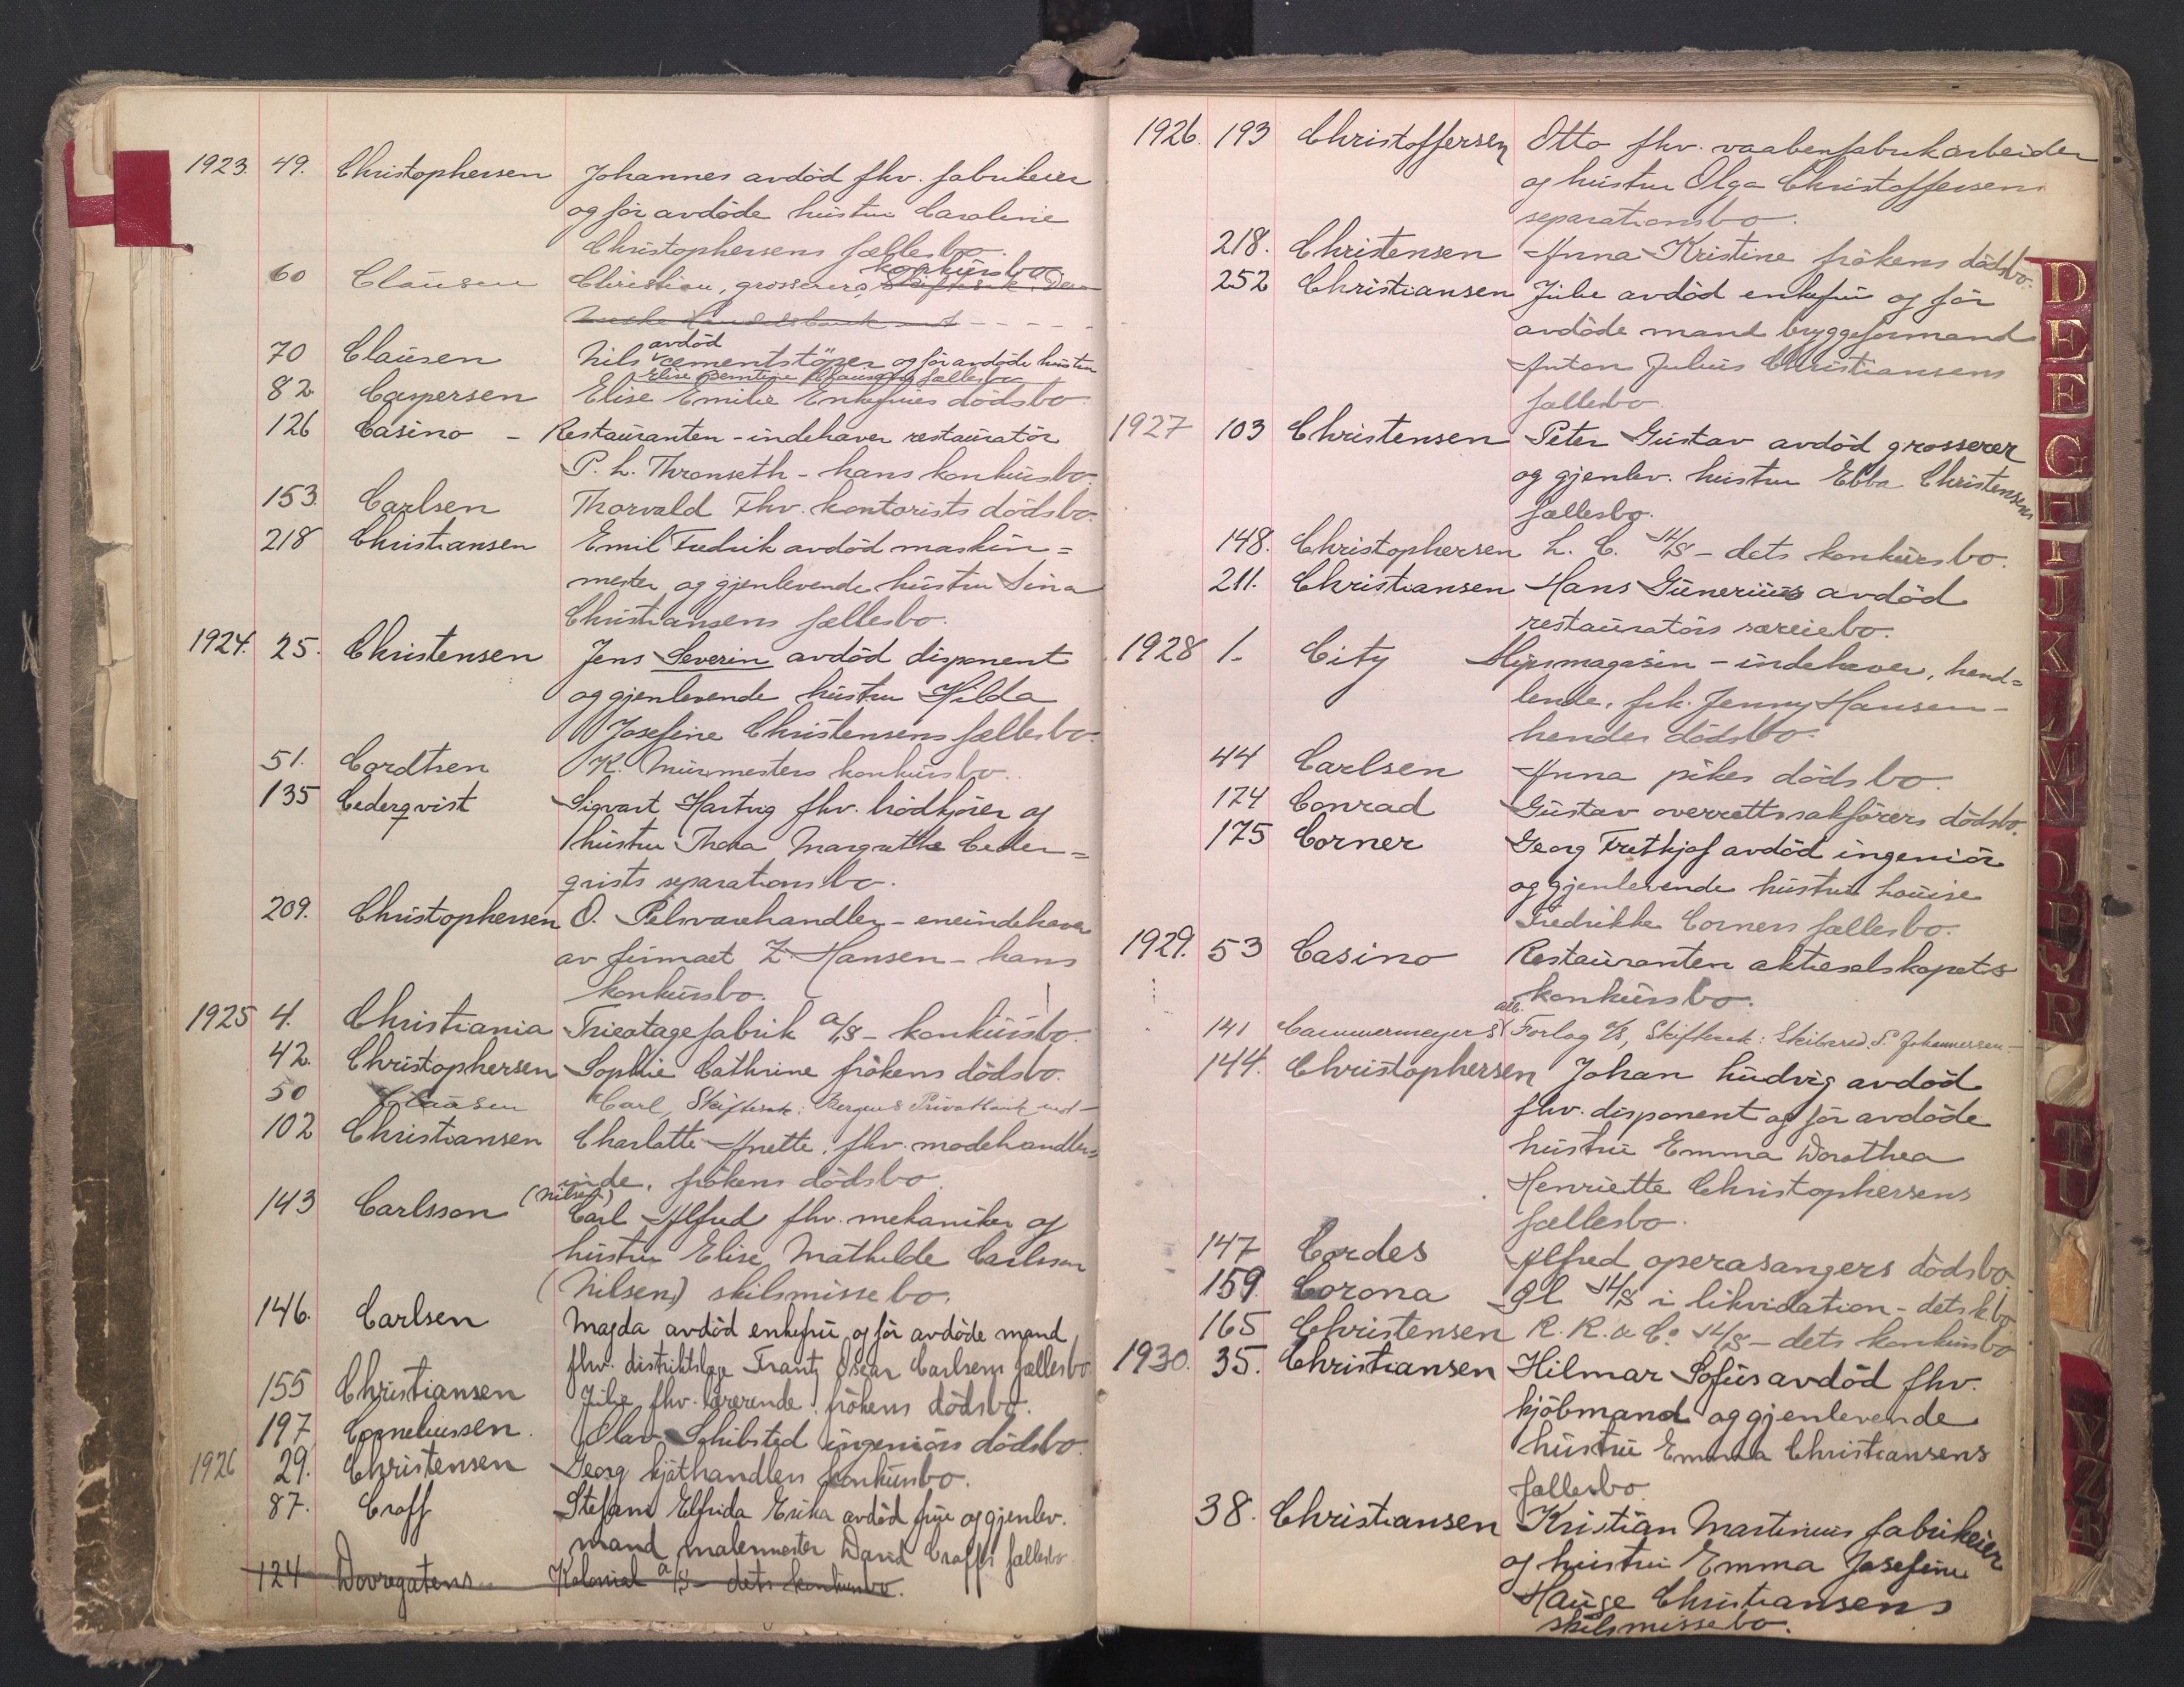 1923. 49. Christophersen Johannes avdöd fhv. fabrikeier
og för avdöde hustru Caroline
Christophersens fællesbo.
60 Clausen Christian, grosserers, konkursbo
70 Clausen Nils avdöd cementstöper og för avdöde hustru
Elise Clausens fællesbo
82 Caspersen Elise Emilie Enkefrues dödsbo
126 Casino - Restauranten - indehaver restauratör
P. L. Thronseth - hans konkursbo.
153. Carlsen Thorvald Fhv. kontorists dödsbo.
218 Christiansen Emil Fredrik avdöd maskin=
mester og gjenlevende hustru Lina
Christiansens fællesbo.
1924. 25. Christensen Jens Severin avdöd disponent
og gjenlevende hustru Hilda
Josefine Christensens fællesbo.
51. Cordtsen K. Murmesters konkursbo.
135 Cederqvist Sigvart Hartvig fhv. brödkjörer og
hustru Thora Margrethe Ceder=
qvists separationsbo.
209. Christophersen O. Pelsvarehandler - eneindehaver
av firmaet Z. Hansen - hans
konkursbo.
1925 4. Christiania Tricotagefabrik a/s - konkursbo.
42. Christophersen Sophie Cathrine frökens dödsbo.
50 Clausen Carl, Skiftesak: Bergens Privatbank mot -
102 Christiansen Charlotte Anette, fhv. modehandler=
inde, frökens dödsbo.
143 Carlsson (Nilsen) Carl Alfred fhv. mekaniker og
hustru Elise Mathilde Carlsson
(Nilsen) skilsmissebo.
146. Carlsen Magda avdöd enkefru og för avdöde mand
fhv. distriktslæge Frantz Oscar Carlsens fællesbo.
155 Christiansen Julie fhv. lærerinde, frökens dödsbo.
197 Corneliussen. Olav Schibsted ingeniörs dödsbo.
1926 29. Christensen Georg kjöthandlers konkursbo.
87. Croff Stefani Elfrida Erika avdöd frue og gjenlev.
mand malermester David Croffs fællesbo.
124 Dovregatens Kolonial a/s - dets konkursbo.
1926. 193 Christoffersen Otto fhv. vaabenfabrikarbeider
og hustru Olga Christoffersens
separationsbo.
218. Christensen Anna Kristine frökens dödsbo.
252 Christiansen Julie avdöd enkefru og för
avdöde mand bryggeformand
Anton Julius Christiansens
fællesbo.
1927 103 Christensen Peter Gustav avdöd grosserer
og gjenlev. hustru Ebba Christensens
fællesbo.
148. Christophersen L. C. A/S - dets konkursbo.
211. Christiansen Hans Gunerius avdöd
restauratörs særeiebo.
1928 1. City Slipsmagasin - indehaver, hend=
lende, frk. Jenny Hansen -
hendes dödsbo.
44 Carlsen Anna pikes dödsbo.
174 Conrad Gustav overrettssakförers dödsbo.
175 Corner Georg Frithjof avdöd ingeniör
og gjenlevende hustru Louise
Fredrikke Corners fællesbo.
1929. 53 Casino Restauranten aktieselskapets
konkursbo.
141 Cammermeyers Forlag a/s, Skiftesak: Skibsred. S. Johannersen -
144. Christophersen Johan Ludvig avdöd
fhv. disponent og för avdöde
hustru Emma Dorothea
Henriette Christophersens
fællesbo.
147 Cordes Alfred operasangers dödsbo.
159 Corona Gl A/S i likvidation - dets kbo.
165 Christensen R. R. & Co. A/S - dets konkursbo
1930. 35. Christiansen Hilmar Sofus avdöd fhv.
kjöbmand og gjenlevende
hustru Emma Christiansens
fællesbo.
38. Christiansen Kristian Martinius fabrikeier
og hustru Emma Josefine
Hauge Christiansens
skilsmissebo.
D
E
F
G
H
I
J
K
L
M
N
O
P
Q
R
T
U
V
Z
Æ